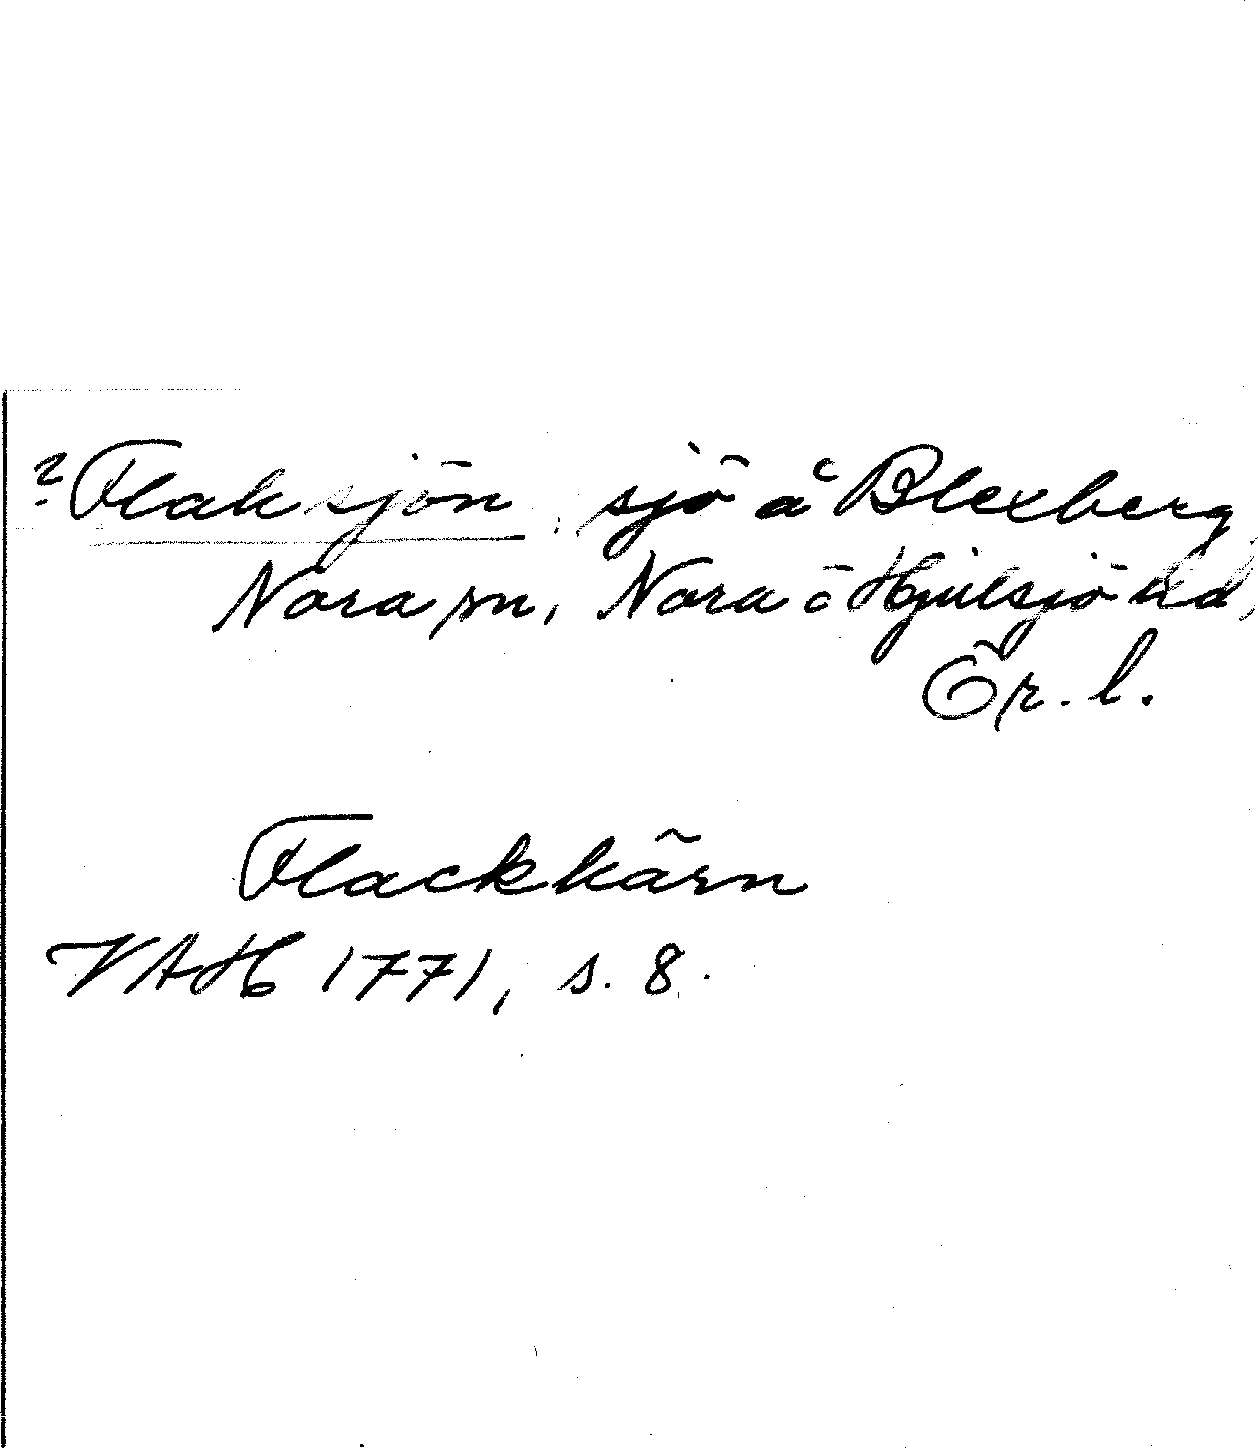 ? Flaksjön, sjö å Blexberg,
Nora sn, Nora o Hjulsjö hd,
Ör. l.
Flackkärn
VAH 1771, s. 8.